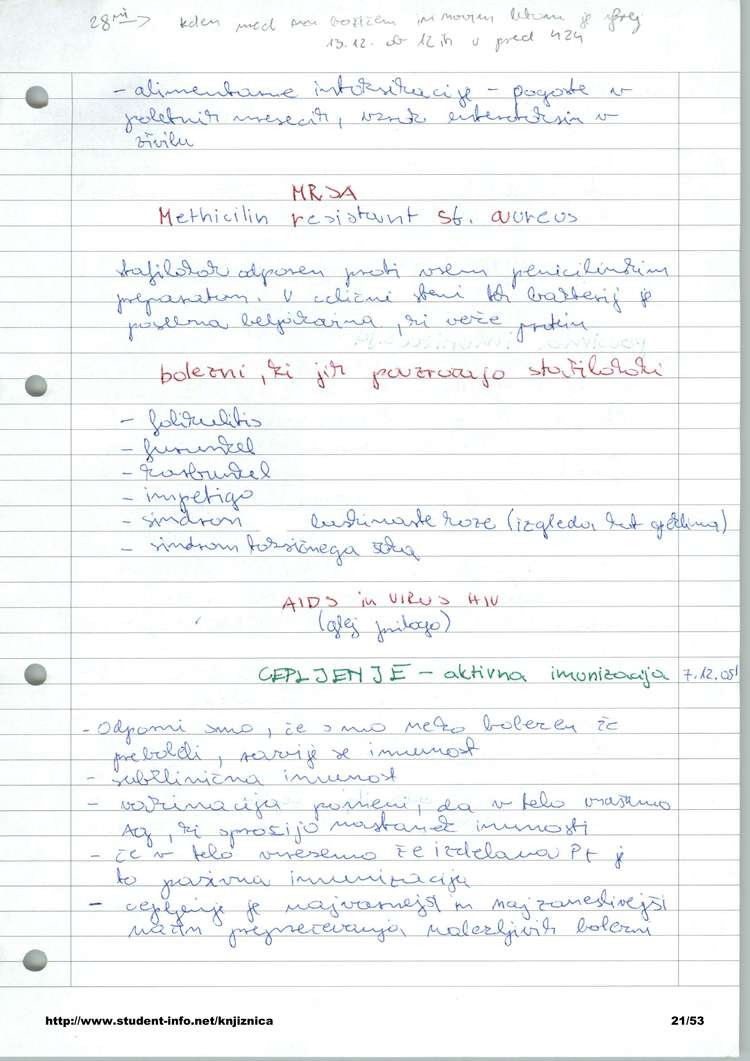 28mi → teden med božičem in novim letom je
19.12. ob 12h v pred 424
- alimentarne intoksikacije - pogoste v
poletnih mesecih, vzrok enterotoksin v
živilu
MRSA
Methicilin resistant st. aureus
stafilokok odporen proti vsem penicilinskim
preparatom. V celični steni teh bakterij je
posebna beljakovina, ki veže protein
bolezni, ki jih povzročajo stafilokoki
- folikulitis
- furunkel
- karbunkel
- impetigo
- sindrom luskinaste kože (izgleda kot opeklina)
- sindrom toksičnega šoka
AIDS in VIRUS HIV
(glej prilogo)
CEPLJENJE - aktivna imunizacija 7.12.05
- Odporni smo, če smo neko bolezen že
preboleli, razvije se imunost
- subklinična imunost
- vakcinacija pomeni, da v telo vnašamo
Ag, ki sprožijo nastanek imunosti
- če v telo vnesemo že izdelana Pt je
to pasivna imunizacija
- cepljenje je najvarnejši in najzanesljivejši
način preprečevanja nalezljivih bolezni
http://www.student-info.net/knjiznica 21/53